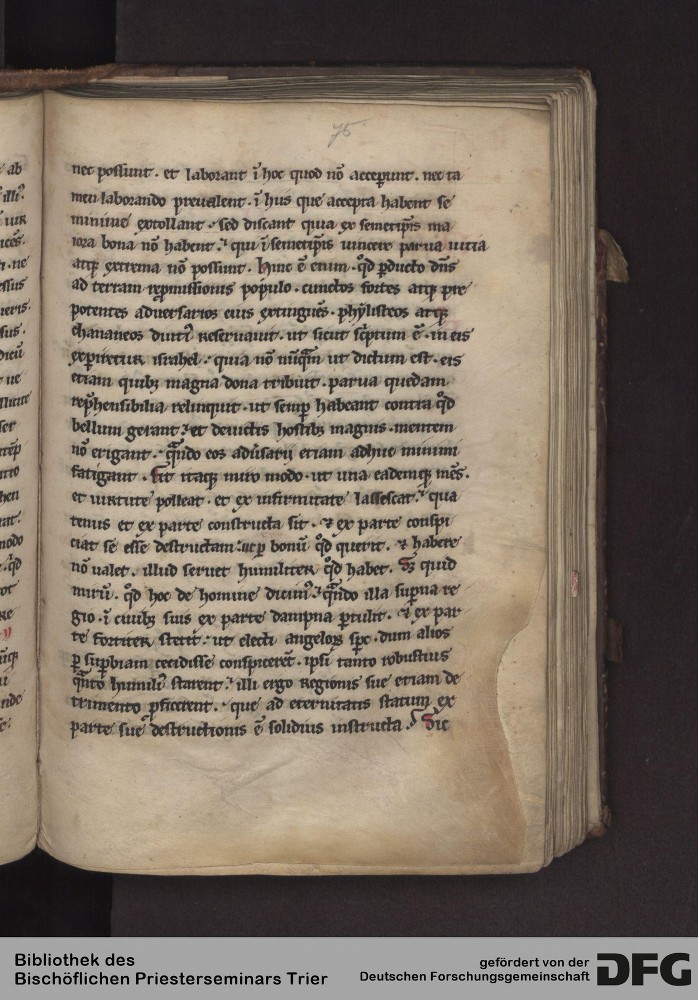 75
nec possunt · et laborant ī hoc quod nō acceꝑunt · nec ta
men laborando preualent · ī hiis que accepta habent se
minime extollant · sed discant quia ex semetip̄is ma
iora bona nō habent · qui ī semetip̄is uincere parua uicia
atqꝫ extrema nō possunt · hinc ē enim · qd̄ ꝑducto dn̄s
ad terram rep̄missionis pop̄ulo · cunctos fortes atqꝫ pre
potentes aduersarios eius extinguēs · phylisteos atqꝫ
chananeos diuti᷑ reseruauit · ut sicut sc̄ptum ē · in eis
exꝑiretur israhel · quia nō nūq̄m ut dictum est · eis
etiam quibꝫ magna dona tribuit · parua quedam
rep̄hensibilia relinquit · ut semꝑ habeant contra qd̄
bellum gerant · et deuictis hostibꝫ magnis · mentem
nō erigant · q̄ndo eos adu̓sarii etiam adhuc minimi
fatigant · fit itaqꝫ miro modo · ut una eademqꝫ mēs ·
et uirtute polleat · et ex infirmitate lassescat · qua
tenus et ex parte constructa sit · ⁊ ex parte conspi
ciat se esse destructam · ut ꝑ bonū qd̄ querit · ⁊ habere
nō ualet · illud seruet humiliter qd̄ habet · Sꝫ quid
mirū · qd̄ hoc de homine dicim᷒ · q̄ndo illa suꝑna re
gio · ī ciuibꝫ suis ex parte dampna ꝑtulit · ⁊ ex par
te fortiter stetit · ut electi angeloꝝ sp̄c · dum alios
ꝑ suꝑbiam cecidisse conspicerēt · ipsi tanto robustius
q̄nto humili᷒ starent · illi ergo regionis sue etiam de
trimento ꝓficerent · que ad eternitatis statum ex
parte sue destructionis ē solidius instructa · Sic
ab
illi ·
Bibliothek des
Bischöflichen Priesterseminars Trier
gefördert von der
Deutschen Forschungsgemeinschaft
DFG